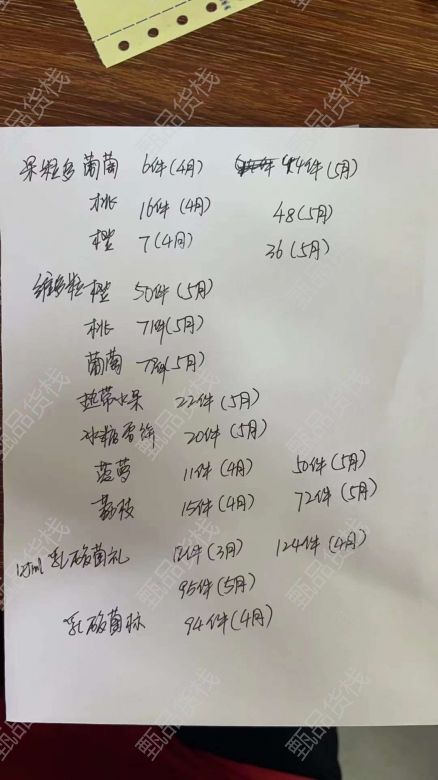 果粒多 葡萄 6件(4月) 44件(5月)
桃 16件(4月) 48(5月)
橙 7(4月) 36(5月)
维多粒 橙 50件(5月)
桃 71件(5月)
葡萄 79件(5月)
热带水果 22件(5月)
冰糖雪饼 20件(5月)
蓝莓 11件(4月) 50件(5月)
荔枝 15件(4月) 72件(5月)
125ml 乳酸菌礼 12件(3月) 124件(4月)
95件(5月)
乳酸菌标 94件(4月)
甄品货栈